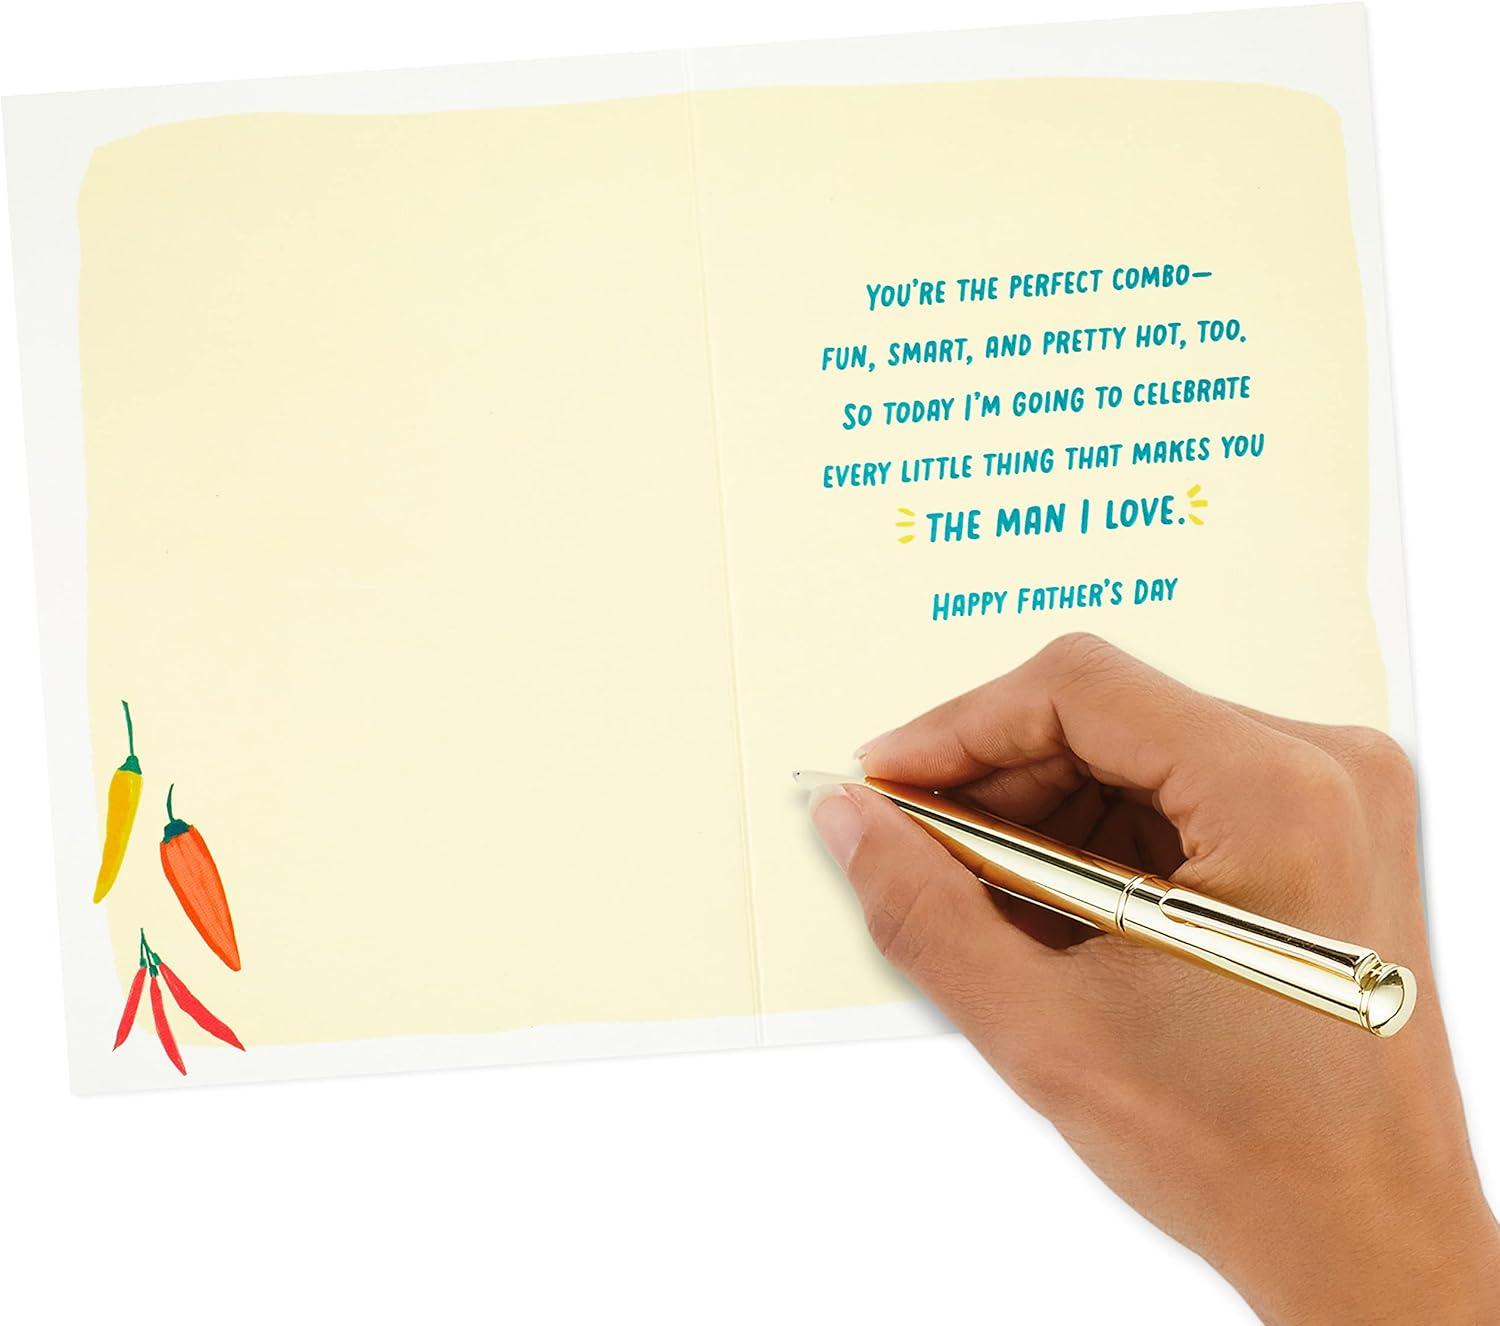 YOU'RE THE PERFECT COMBO—
FUN, SMART, AND PRETTY HOT, TOO.
SO TODAY I'M GOING TO CELEBRATE
EVERY LITTLE THING THAT MAKES YOU
THE MAN I LOVE.
HAPPY FATHER'S DAY